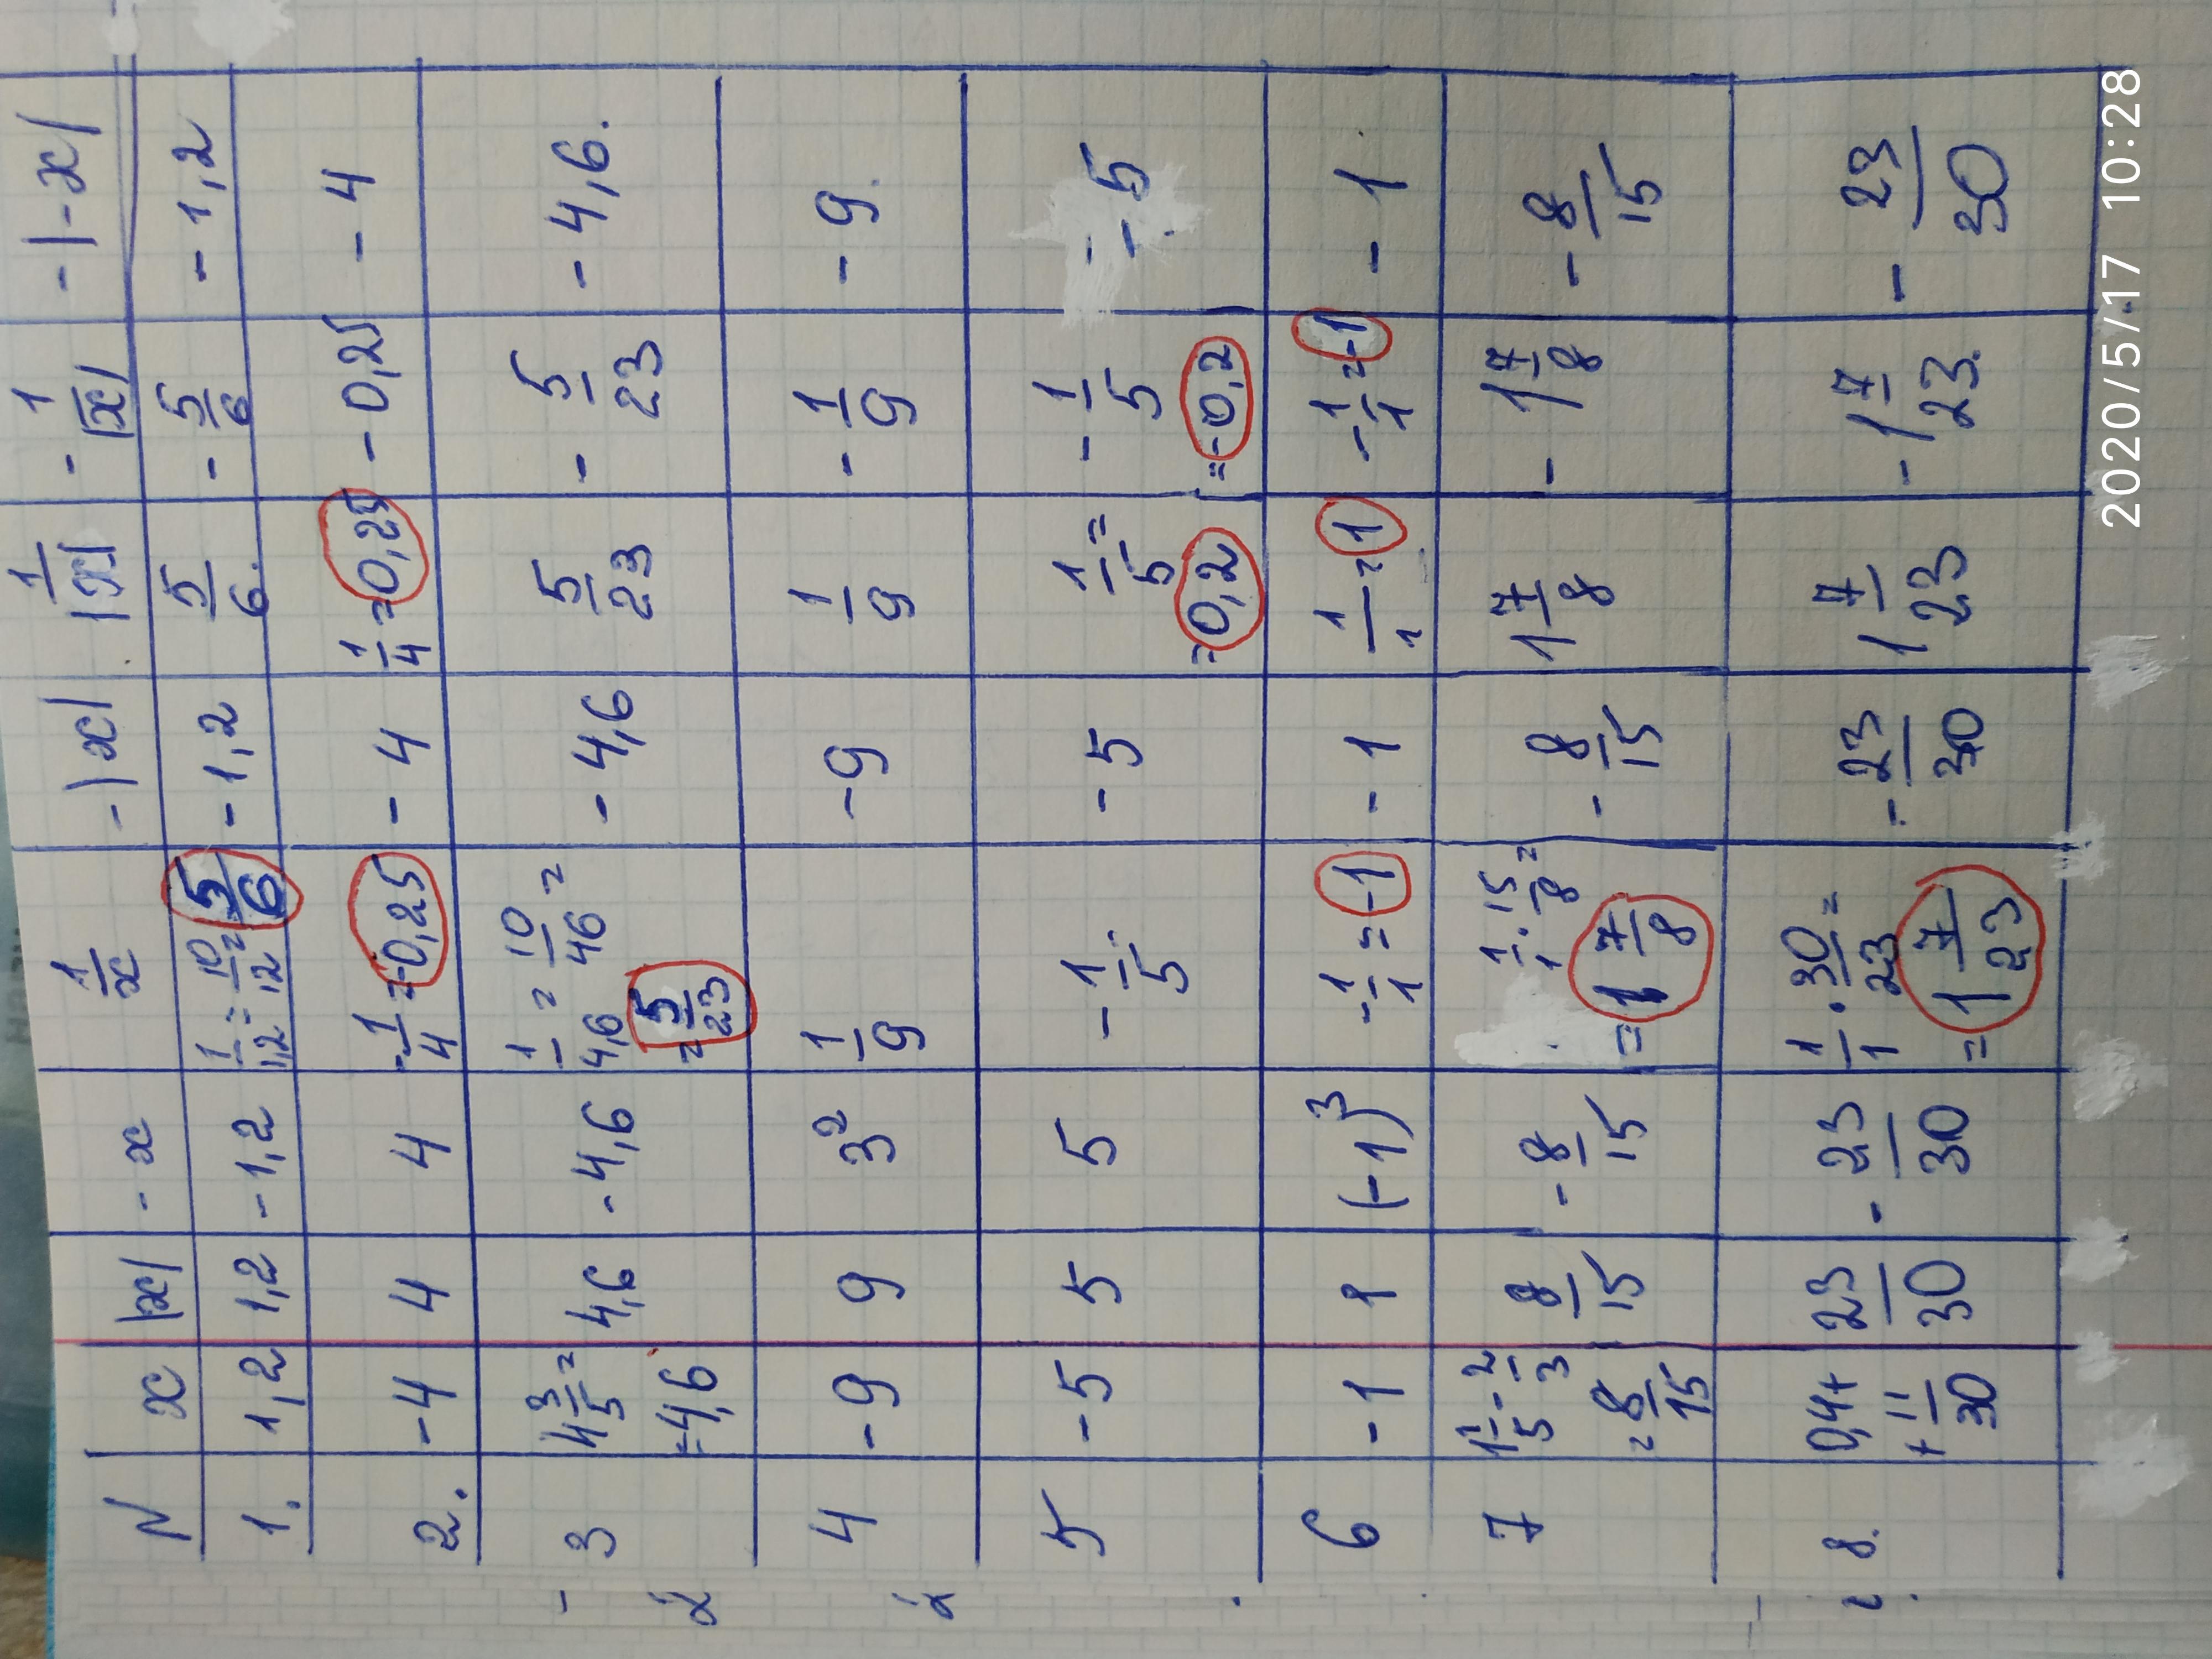 N x |x| -x 1/x -|x| 1/|x| -1/|x| -|-x|
1. 1,2 1,2 -1,2 1/1,2 = 10/12 = 5/6 -1,2 5/6. -5/6 -1,2
2. -4 4 4 -1/4 = -0,25 -4 1/4 = 0,25 -0,25 -4
3 4 3/5 = =4,6 4,6 -4,6 1/4,6 = 10/46 = = 5/23 -4,6 5/23 -5/23 -4,6.
4 -9 9 3² 1/9 -9 1/9 -1/9 -9.
5 -5 5 5 -1/5. -5 1/5 = =0,2 -1/5 = -0,2 -5
6 -1 1 (-1)³ -1/1 = -1 -1 1/1 = 1 -1/1 = -1 -1
7 1 1/5 - 2/3 = 8/15 8/15 -8/15 1/1 · 15/8 = = 1 7/8 -8/15 1 7/8 -1 7/8 -8/15
8. 0,4+ + 11/30 23/30 -23/30 1/1 · 30/23 = = 1 7/23 -23/30 1 7/23 -1 7/23. -23/30
2020/5/17 10:28